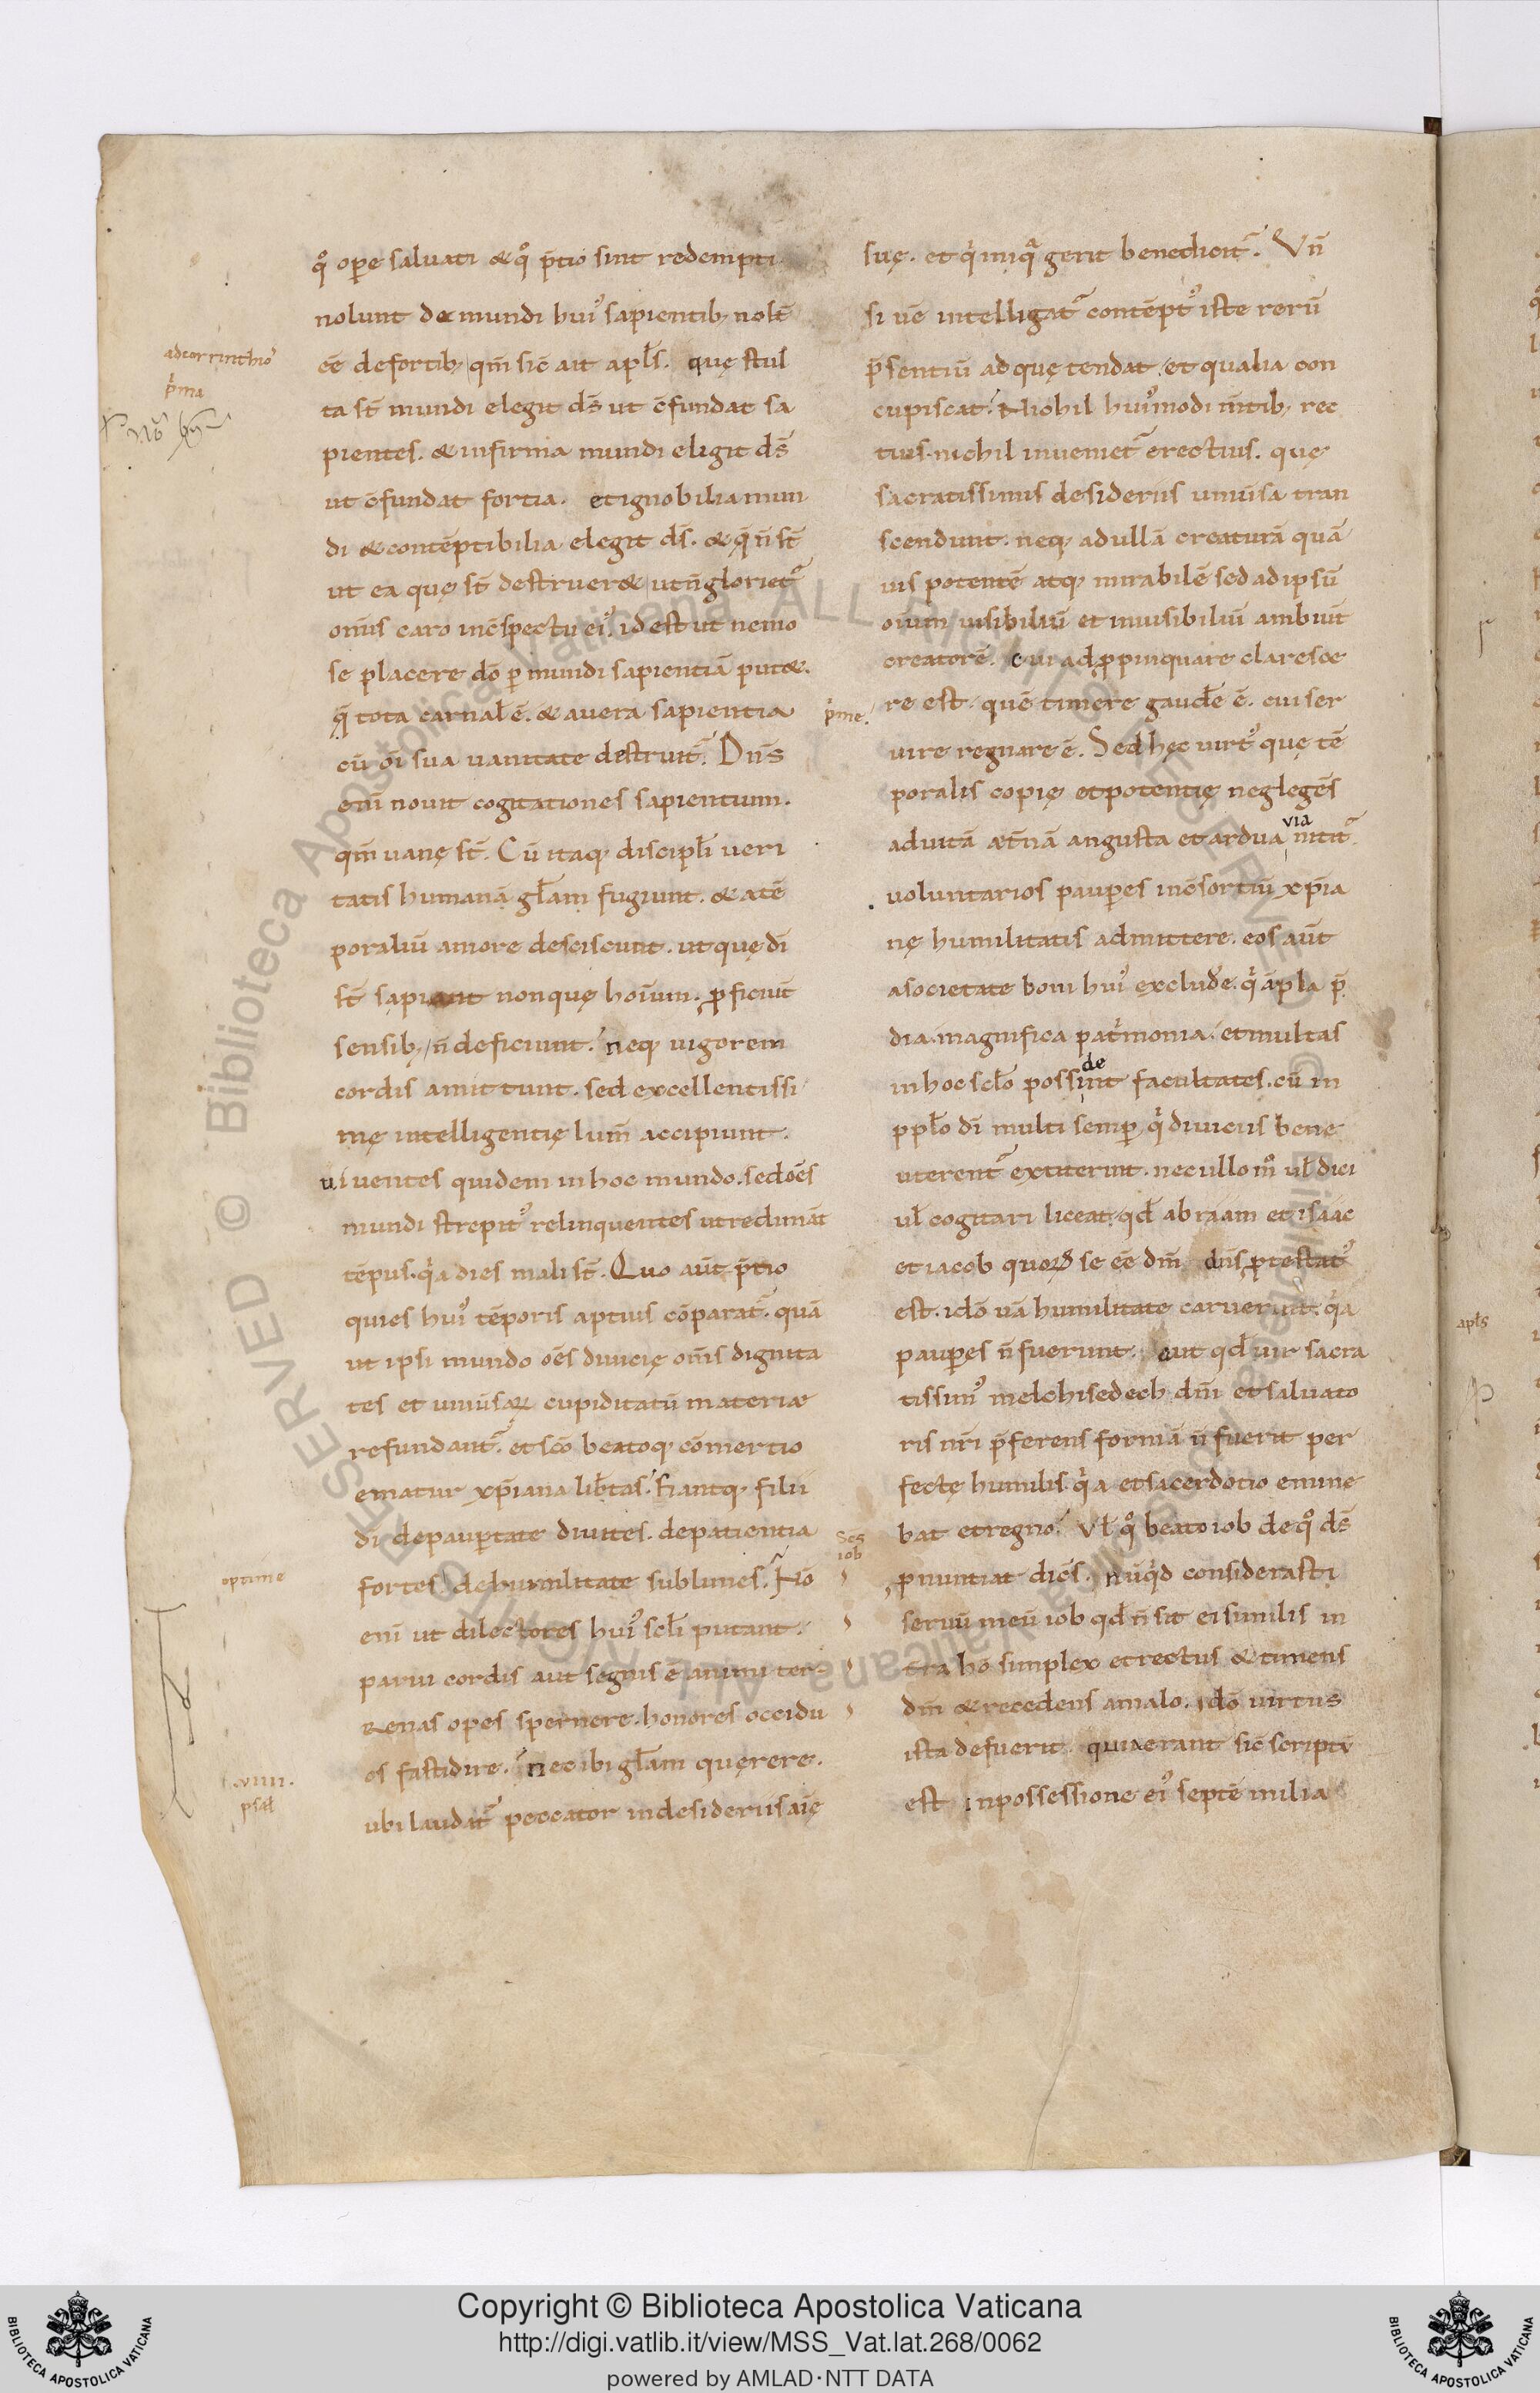 qͦ oꝑe saluati & qͦ p̄tio sint redempti
nolunt de mundi huiꝰ sapientib; nolt̄
ēē de fortib; qm̄ sic̄ ait apl̄s. quę stul
ta st̄ mundi elegit ds̄ ut c̄fundat sa
pientes. & infirma mundi eligit ds̄
ut c̄fundat fortia. et ignobilia mun
di & contēptibilia elegit ds̄. & q̨̄ n̄ st̄
ut ea quę st̄ destruer& ut n̄ glorietᷣ
om̄is caro in c̄spectu eiꝰ. id est ut nemo
se placere dō ꝑ mundi sapientiā put&.
q̨̄ tota carnal̄ ē. & a uera sapientia
cū ōi sua uanitate destruitᷣ. Dn̄s
eni̅ nouit cogitationes sapientium.
qm̄ uanę st̄. Cū itaq; discipl̄i ueri
tatis humanā gl̄am fugiunt. & a tē
poraliū amore desciscunt. ut quę dī
st̄ sapiant non quę hoīum. ꝓficiūt
sensib; n̄ deficiunt. neq; uigorem
cordis amittunt. sed excellentissi
mę intelligentię lum̄ accipiunt.
uiuentes quidem in hoc mundo. sed oēs
mundi strepitꝰ relinquentes ut redimāt
tēpus. qͥa dies mali st̄. Quo aūt p̄tio
quies huiꝰ tēporis aptius cōparatᷣ. quā
ut ipsi mundo oēs diuicię om̄s dignita
tes et uniūsaꝝ cupiditatū materiæ
refundantᷣ. et scō beatoq; cōmertio
ematur xp̄iana lib̄tas. Fiantq; filii
dī de pauꝑtate diuites. de patientia
fortes. de humilitate sublimes. Nō
eni̅ ut dilectores huiꝰ scl̄i putant.
parui cordis aut segnis ē animi ter-
renas opes spernere. honores occidu
os fastidire. nec ibi gl̄am quęrere.
ubi laudatᷣ peccator in desideriis aīę
suę. et qͥ iniqͣ gerit benediciturᷣ. Vn̄
si uē intelligatᷣ contēptꝰ iste rerū
p̄sentiū ad quę tendat. et qualia con
cupiscat. Nichil huiꝰmodi m̄tib; rec
tius. nichil inuenietᷣ erectius. quę
sacratissimis desideriis uniūsa tran
scendunt. neq; ad ullā creaturā quā
uis potentē atq; mirabilē sed ad ipsū
oīum uisibiliū et inuisibiliū ambiūt
creatorē. cui adꝓpinquare claresce
re est. quē timere gaud̄e ē. cui ser
uire regnare ē. Sed hęc uirtꝰ quę tē
poralis copię et potentię neglegēs
via
ad uitā æt̄nā angusta et ardua nititᷣ.
voluntarios pauꝑes in c̄sortiū xp̄ia
nę humilitatis admittere. eos aūt
a societate boni huiꝰ exclud̄e. qͥ āpla p̄
dia. magnifica patͥmonia. et multas
de
in hoc scl̄o possint facultates. cū in
ppl̄o dī multi semꝑ qͥ diuiciis bene
uterentᷣ extiterint. nec ullo mͦ ul̄ dici
ul̄ cogitari liceat. qd̄ abraam et isaac
et iacob quoꝝ se ēē dm̄ dn̄s ꝓtestatꝰ
est. idō uā humilitate caruerint. qͥa
pauꝑes n̄ fuerunt. aut qd̄ uir sacra
tissimꝰ melchisedech dn̄i et saluato
ris nr̄i p̄ferens formā n̄ fuerit per
fectę humilis. qͥa et sacerdotio emine
bat et regno. Vl̄ qͦ beato iob de qͦ ds̄
ꝓnuntiat dicēs. nūqͥd considerasti
seruū meū iob qd̄ n̄ sit ei similis in
t̄ra hō simplex et rectus & timens
dm̄ & recedens a malo. idō uirtus
ista defuerit. quia erant sic̄ scriptū
est in possessione eiꝰ septē milia
ad corrinthioˢ
pͥma
pͥme.
optime
xviiii.
psal̄
Scs
iob
apl̄s
Copyright © Biblioteca Apostolica Vaticana
http://digi.vatlib.it/view/MSS_Vat.lat.268/0062
powered by AMLAD·NTT DATA
BIBLIOTECA APOSTOLICA VATICANA
BIBLIOTECA APOSTOLICA VATICANA